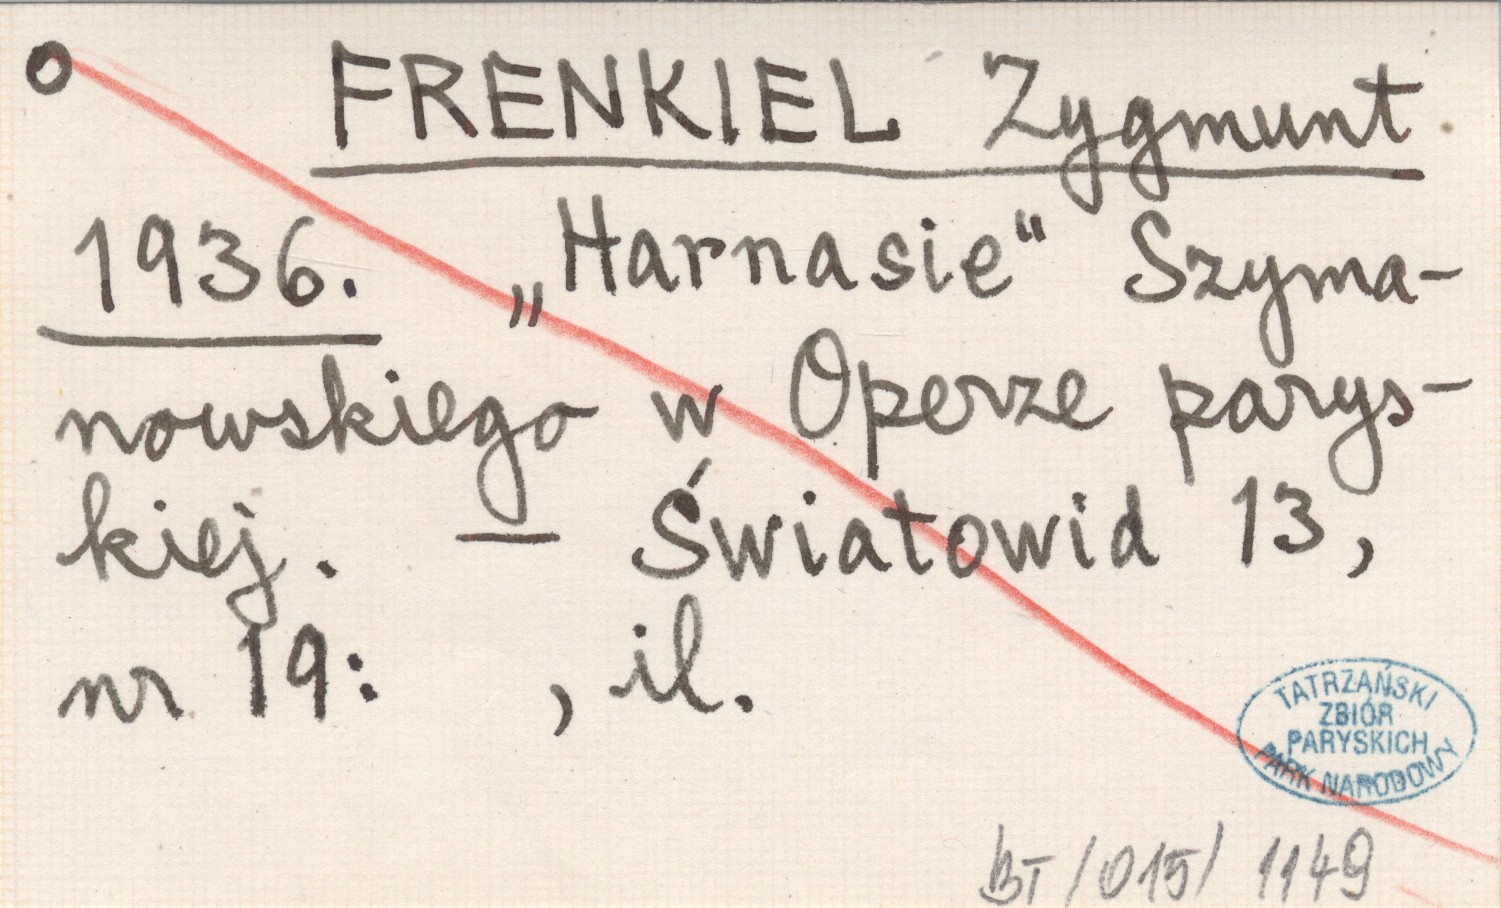 o FRENKIEL Zygmunt
1936. „Harnasie" Szyma-
nowskiego w Operze parys-
kiej. — Światowid 13,
nr 19: , il.
TATRZAŃSKI
ZBIÓR
PARYSKICH
PARK NARODOWY
BT/015/1149